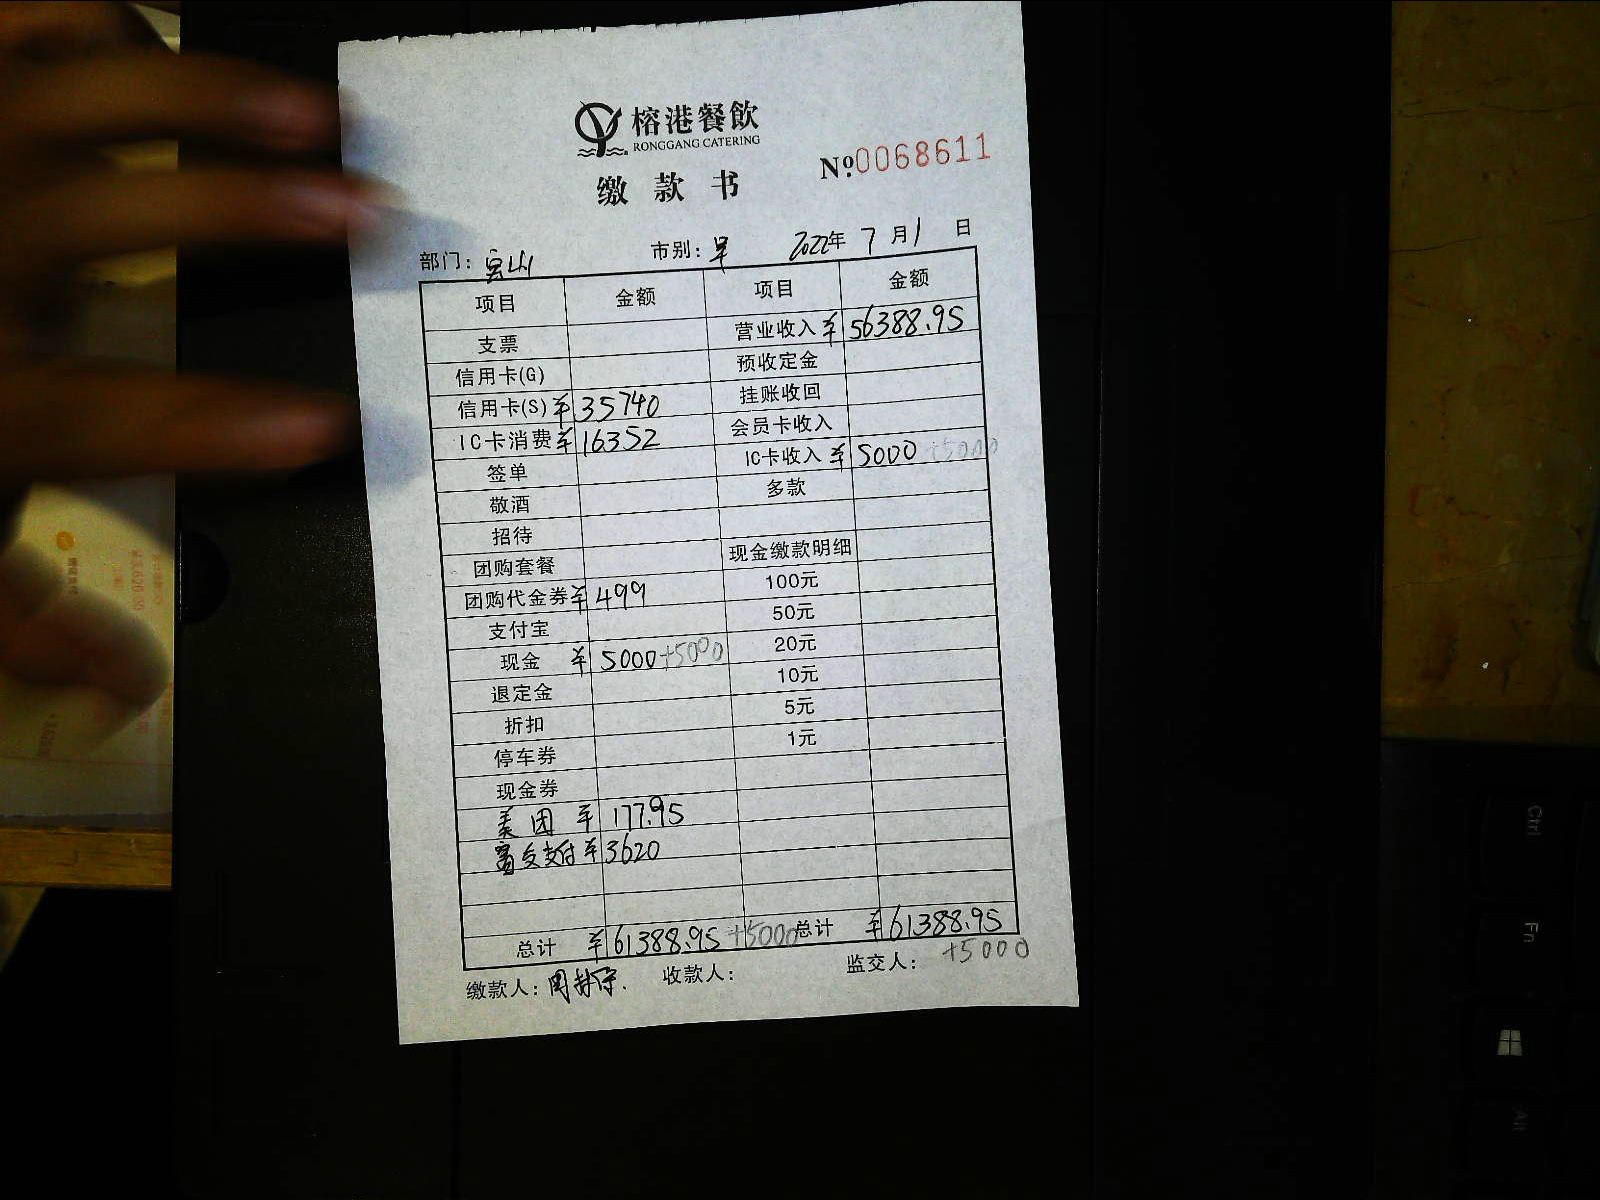 榕港餐飲
RONGGANG CATERING
№0068611
缴款书
部门：宝山 市别：早 2022年7月1日
项目 金额 项目 金额
支票 营业收入 ¥56388.95
信用卡(G) 预收定金
信用卡(S) ¥35740 挂账收回
IC卡消费 ¥16352 会员卡收入
签单 IC卡收入 ¥5000 +5000
敬酒 多款
招待
团购套餐 现金缴款明细
团购代金券 ¥499 100元
支付宝 50元
现金 ¥5000+5000 20元
退定金 10元
折扣 5元
停车券 1元
现金券
美团 ¥177.95
支付 ¥3620
总计 ¥61388.95 +5000 总计 ¥61388.95
+5000
缴款人：周 收款人： 监交人：
Ctrl
Fn
Alt